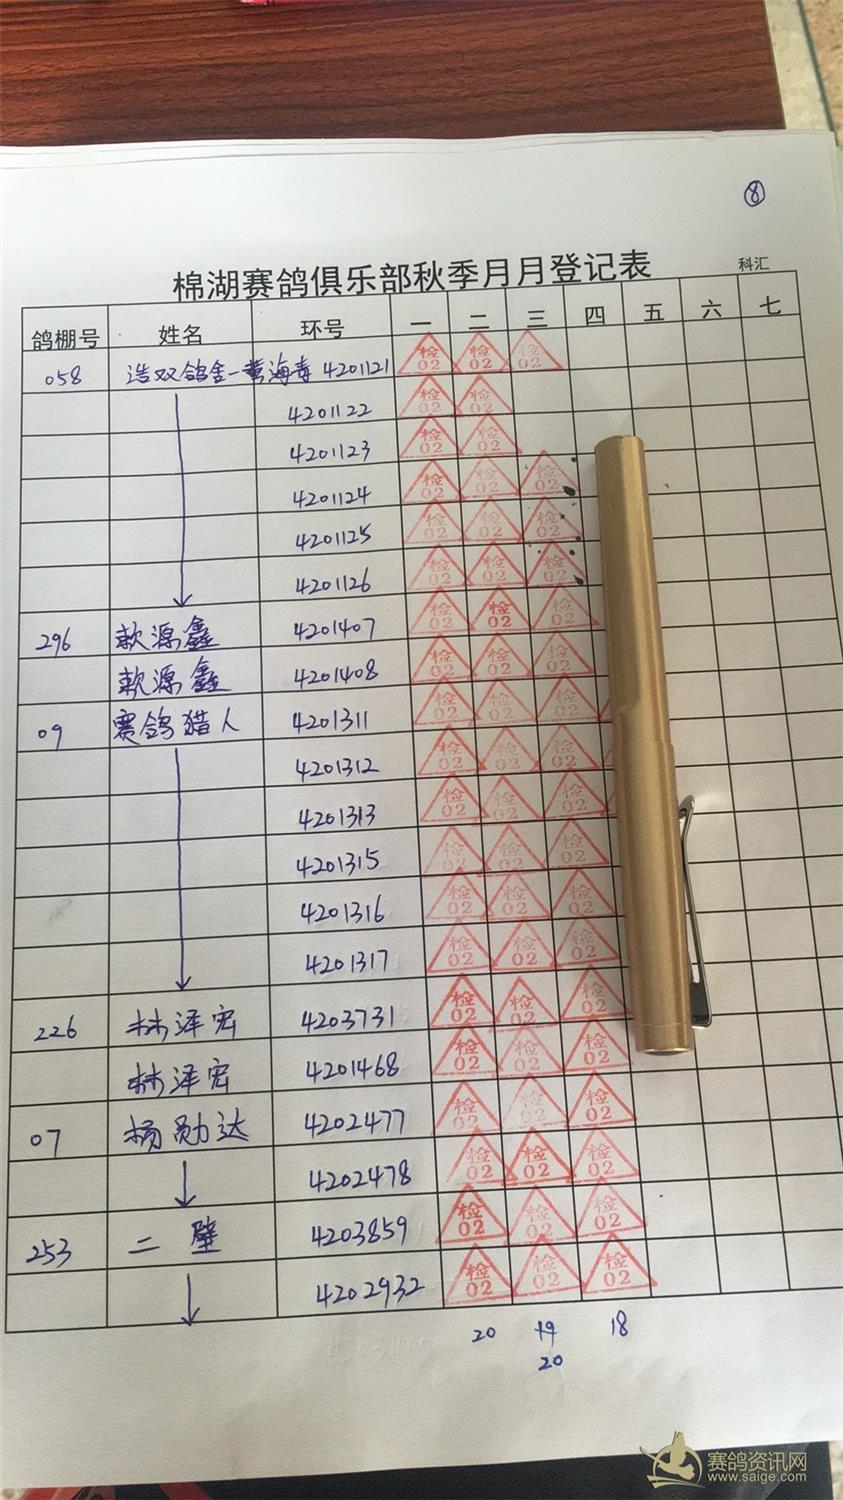 ⑧
棉湖赛鸽俱乐部秋季月月登记表 科汇
鸽棚号 姓名 环号 一 二 三 四 五 六 七
058 浩双鸽舍-黄海青 4201121 检02 检02 检02
4201122 检02 检02
4201123 检02 检02
4201124 检02 检02 检02
4201125 检02 检02 检02
4201126 检02 检02 检02
296 歉源鑫 4201407 检02 检02 检02
歉源鑫 4201408 检02 检02 检02
09 赛鸽猎人 4201311 检02 检02 检02
4201312 检02 检02 检02
4201313 检02 检02 检02
4201315 检02 检02 检02
4201316 检02 检02 检02
4201317 检02 检02 检02
226 林泽宏 4203731 检02 检02 检02
林泽宏 4201468 检02 检02 检02
07 杨勋达 4202477 检02 检02 检02
4202478 检02 检02 检02
253 二壁 4203859 检02 检02 检02
4202932 检02 检02 检02
20 19 18
20
赛鸽资讯网
www.saige.com